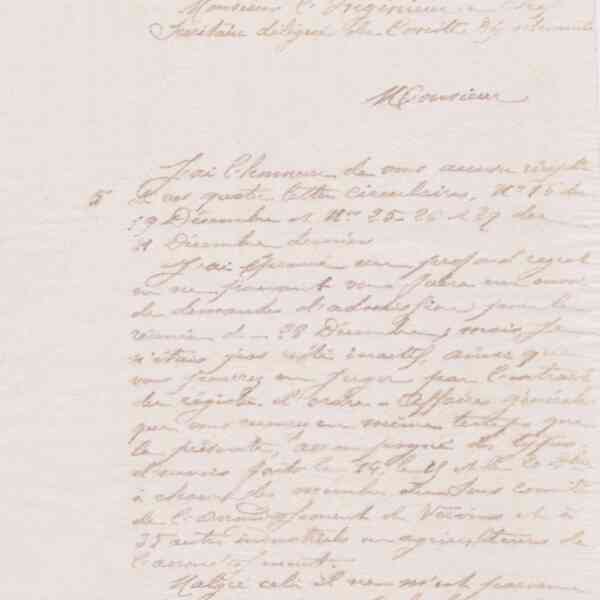 Monsieur l'Ingénieur en Chef
Secrétaire délégué du Comité
Monsieur
J'ai l'honneur de vous accuser récépté
5 de vos quatre lettres circulaires, Nos 15 du
19 Décembre et Nos 25 26 & 27 du
21 Décembre dernier
J'ai éprouvé un profond regret
en ne pouvant vous faire un envoi
de demandes d'admission pour la
réunion du 28 Décembre, mais je
n'étais pas resté inactif, ainsi que
vous pourrez en juger par l'extrait
du registre d'ordre - Affaires générales
que vous recevrez en même temps que
la présente, accompagné des
d'envois faits le 14 le et le 20
à chacun des membres du Sous comité
de l'arrondissement de Vervins et à
35 autres industriels ou agriculteurs de
l'arrondissement.
Malgré cela il ne m'est parvenu